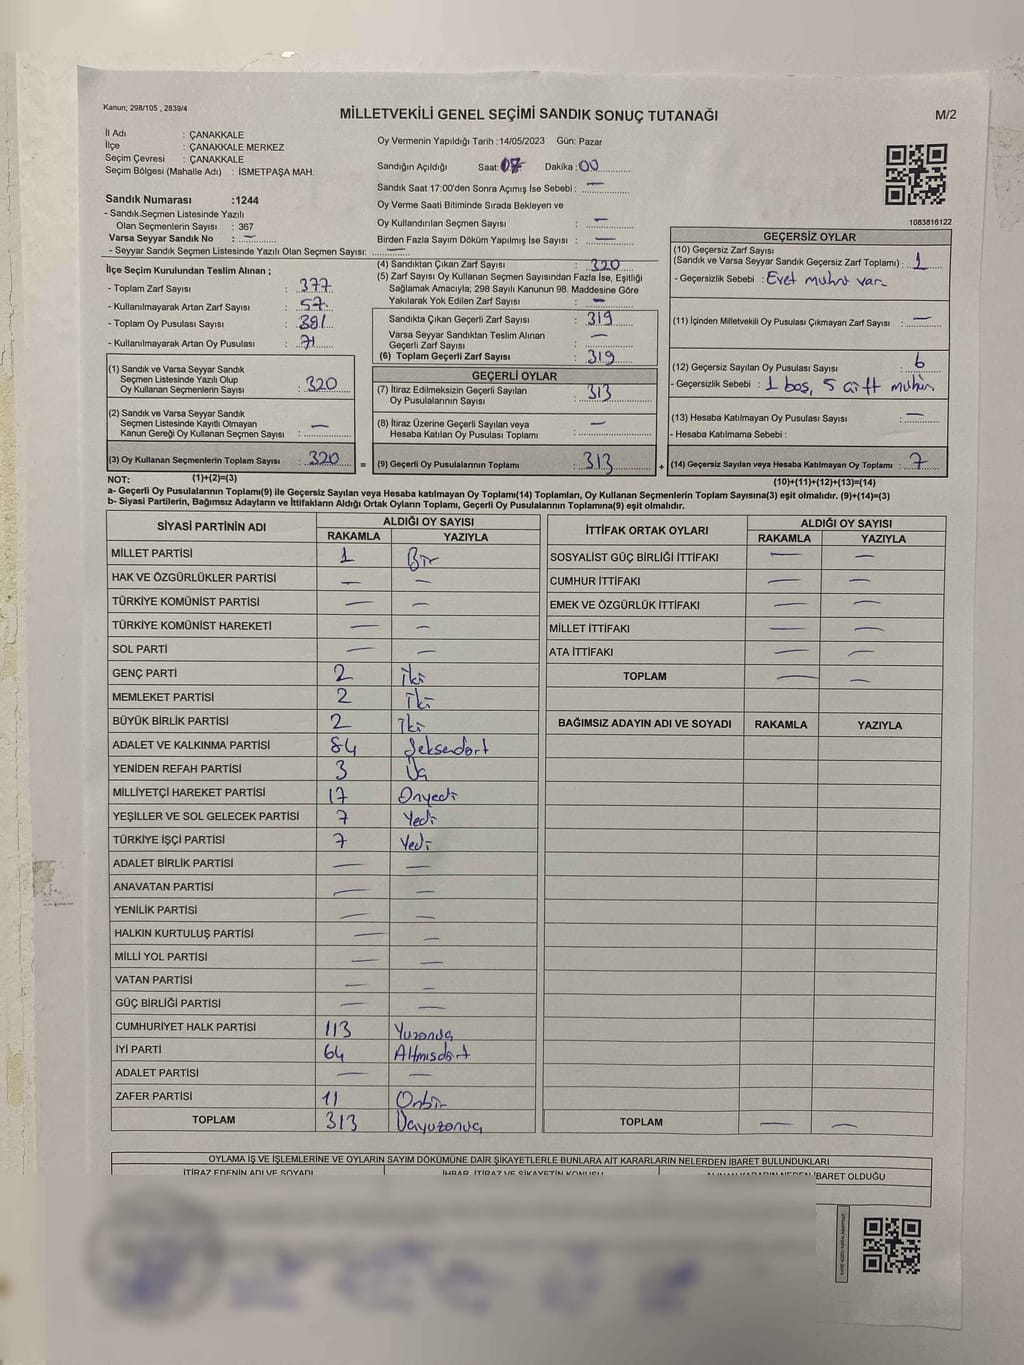 Kanun; 298/105 , 2839/4
MİLLETVEKİLİ GENEL SEÇİMİ SANDIK SONUÇ TUTANAĞI
M/2
İl Adı : ÇANAKKALE
İlçe : ÇANAKKALE MERKEZ
Seçim Çevresi : ÇANAKKALE
Seçim Bölgesi (Mahalle Adı) : İSMETPAŞA MAH.
Sandık Numarası :1244
- Sandık Seçmen Listesinde Yazılı
Olan Seçmenlerin Sayısı : 367
Varsa Seyyar Sandık No : —
- Seyyar Sandık Seçmen Listesinde Yazılı Olan Seçmen Sayısı: —
Oy Vermenin Yapıldığı Tarih :14/05/2023 Gün: Pazar
Sandığın Açıldığı Saat: Dakika :00
Sandık Saat 17:00'den Sonra Açımış İse Sebebi : —
Oy Verme Saati Bitiminde Sırada Bekleyen ve
Oy Kullandırılan Seçmen Sayısı : —
Birden Fazla Sayım Döküm Yapılmış İse Sayısı : —
1083816122
İlçe Seçim Kurulundan Teslim Alınan ;
- Toplam Zarf Sayısı : 377
- Kullanılmayarak Artan Zarf Sayısı : 57
- Toplam Oy Pusulası Sayısı : 391
- Kullanılmayarak Artan Oy Pusulası : 71
(1) Sandık ve Varsa Seyyar Sandık
Seçmen Listesinde Yazılı Olup
Oy Kullanan Seçmenlerin Sayısı : 320
(2) Sandık ve Varsa Seyyar Sandık
Seçmen Listesinde Kayıtlı Olmayan
Kanun Gereği Oy Kullanan Seçmen Sayısı : —
(3) Oy Kullanan Seçmenlerin Toplam Sayısı : 320
(4) Sandıktan Çıkan Zarf Sayısı : 320
(5) Zarf Sayısı Oy Kullanan Seçmen Sayısından Fazla İse, Eşitliği
Sağlamak Amacıyla; 298 Sayılı Kanunun 98. Maddesine Göre
Yakılarak Yok Edilen Zarf Sayısı : —
Sandıkta Çıkan Geçerli Zarf Sayısı : 319
Varsa Seyyar Sandıktan Teslim Alınan
Geçerli Zarf Sayısı : —
(6) Toplam Geçerli Zarf Sayısı : 319
GEÇERLİ OYLAR
(7) İtiraz Edilmeksizin Geçerli Sayılan
Oy Pusulalarının Sayısı : 313
(8) İtiraz Üzerine Geçerli Sayılan veya
Hesaba Katılan Oy Pusulası Toplamı : —
= (9) Geçerli Oy Pusulalarının Toplamı : 313
GEÇERSİZ OYLAR
(10) Geçersiz Zarf Sayısı
(Sandık ve Varsa Seyyar Sandık Geçersiz Zarf Toplamı) : 1
- Geçersizlik Sebebi : Evet muhrü var
(11) İçinden Milletvekili Oy Pusulası Çıkmayan Zarf Sayısı : —
(12) Geçersiz Sayılan Oy Pusulası Sayısı : 6
- Geçersizlik Sebebi : 1 boş, 5 çift muhür
(13) Hesaba Katılmayan Oy Pusulası Sayısı : —
- Hesaba Katılmama Sebebi :
+ (14) Geçersiz Sayılan veya Hesaba Katılmayan Oy Toplamı : 7
NOT: (1)+(2)=(3) (10)+(11)+(12)+(13)=(14)
a- Geçerli Oy Pusulalarının Toplamı(9) ile Geçersiz Sayılan veya Hesaba katılmayan Oy Toplamı(14) Toplamları, Oy Kullanan Seçmenlerin Toplam Sayısına(3) eşit olmalıdır. (9)+(14)=(3)
b- Siyasi Partilerin, Bağımsız Adayların ve İttifakların Aldığı Ortak Oyların Toplamı, Geçerli Oy Pusulalarının Toplamına(9) eşit olmalıdır.
SİYASİ PARTİNİN ADI ALDIĞI OY SAYISI
RAKAMLA YAZIYLA
MİLLET PARTİSİ 1 Bir
HAK VE ÖZGÜRLÜKLER PARTİSİ — —
TÜRKİYE KOMÜNİST PARTİSİ — —
TÜRKİYE KOMÜNİST HAREKETİ — —
SOL PARTİ — —
GENÇ PARTİ 2 İki
MEMLEKET PARTİSİ 2 İki
BÜYÜK BİRLİK PARTİSİ 2 İki
ADALET VE KALKINMA PARTİSİ 84 Seksendört
YENİDEN REFAH PARTİSİ 3 Üç
MİLLİYETÇİ HAREKET PARTİSİ 17 Onyedi
YEŞİLLER VE SOL GELECEK PARTİSİ 7 Yedi
TÜRKİYE İŞÇİ PARTİSİ 7 Yedi
ADALET BİRLİK PARTİSİ — —
ANAVATAN PARTİSİ — —
YENİLİK PARTİSİ — —
HALKIN KURTULUŞ PARTİSİ — —
MİLLİ YOL PARTİSİ — —
VATAN PARTİSİ — —
GÜÇ BİRLİĞİ PARTİSİ — —
CUMHURİYET HALK PARTİSİ 113 Yuzonüç
İYİ PARTİ 64 Altmışdört
ADALET PARTİSİ — —
ZAFER PARTİSİ 11 Onbir
TOPLAM 313 Üçyuzonüç
İTTİFAK ORTAK OYLARI ALDIĞI OY SAYISI
RAKAMLA YAZIYLA
SOSYALİST GÜÇ BİRLİĞİ İTTİFAKI — —
CUMHUR İTTİFAKI — —
EMEK VE ÖZGÜRLÜK İTTİFAKI — —
MİLLET İTTİFAKI — —
ATA İTTİFAKI — —
TOPLAM — —
BAĞIMSIZ ADAYIN ADI VE SOYADI RAKAMLA YAZIYLA
TOPLAM — —
OYLAMA İŞ VE İŞLEMLERİNE VE OYLARIN SAYIM DÖKÜMÜNE DAİR ŞİKAYETLERLE BUNLARA AİT KARARLARIN NELERDEN İBARET BULUNDUKLARI
İTİRAZ EDENİN ADI VE SOYADI İHBAR, İTİRAZ VE ŞİKAYETİN KONUSU İBARET OLDUĞU